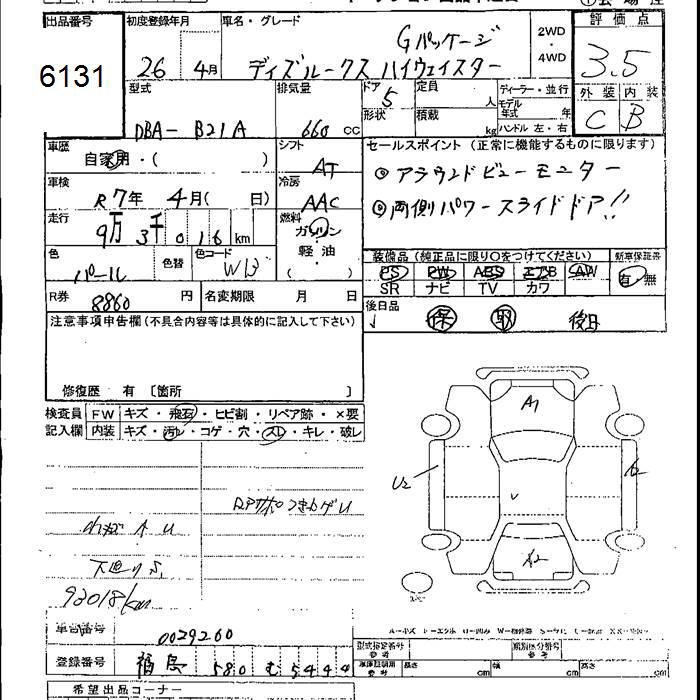 出品番号
6131
初度登録年月
26年 4月
車名・グレード
Gパッケージ
ディズルークス ハイウェイスター
2WD
・
4WD
評価点
3.5
外装 内装
C B
型式
DBA- B21A
排気量
660 cc
ドア
5
形状
定員
人
積載
kg
ディーラー・並行
モデル年式 年
ハンドル 左・右
車歴
自家用・( )
シフト
AT
セールスポイント (正常に機能するものに限ります)
◎アラウンドビューモニター
◎両側パワースライドドア!!
車検
R7年 4月( 日)
冷房
AAC
走行
9万3千016km
燃料
ガソリン
軽・油
( )
色
パール
色替
色コード
W13
装備品 (純正品に限り○をつけてください)
新車保証書
PS PW ABS エアB AW
SR ナビ TV カワ
有・無
R券 8860 円
名変期限 月 日
後日品
保 取 後日
注意事項申告欄 (不具合内容等は具体的に記入して下さい)
修復歴 有 〔箇所 〕
検査員 FW キズ・飛石・ヒビ割・リペア跡・×要
記入欄 内装 キズ・汚れ・コゲ・穴・スレ・キレ・破レ
下廻りS
93018km
A1
U2
A2
A2
車台番号 0029260
登録番号 福島 580 む 5444
型式指定番号
参考
類別区分番号
参考
車庫証明用
参考
長さ cm
幅 cm
高さ cm
希望出品コーナー